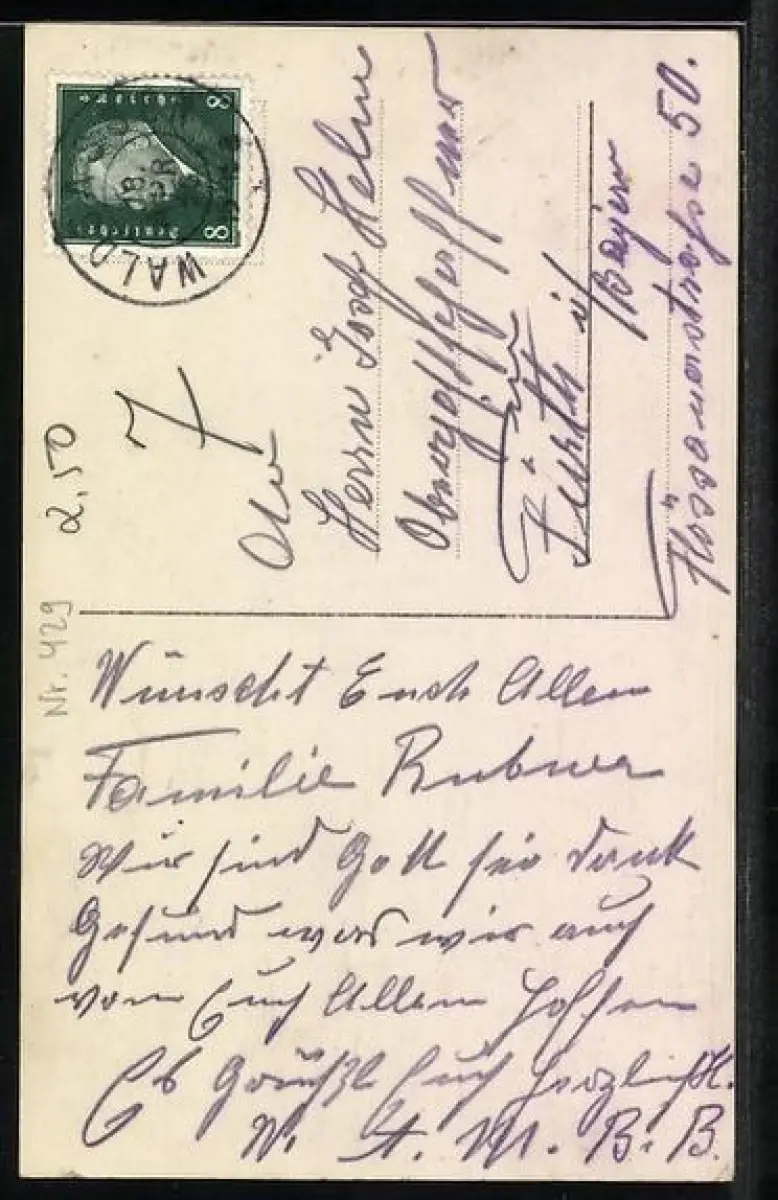 8
8
Deutsches
WALD
7
An
Herrn Josef Helm
in
Fürth i/Bayern
Flössaustraße 50.
Nr. 429
2,50
Wünscht Euch Allen
Familie
Wir sind Gott sei Dank
Gesund was wir auch
von Euch Allen hoffen
Es Grüßt Euch herzlichst.
A. M. B. B.